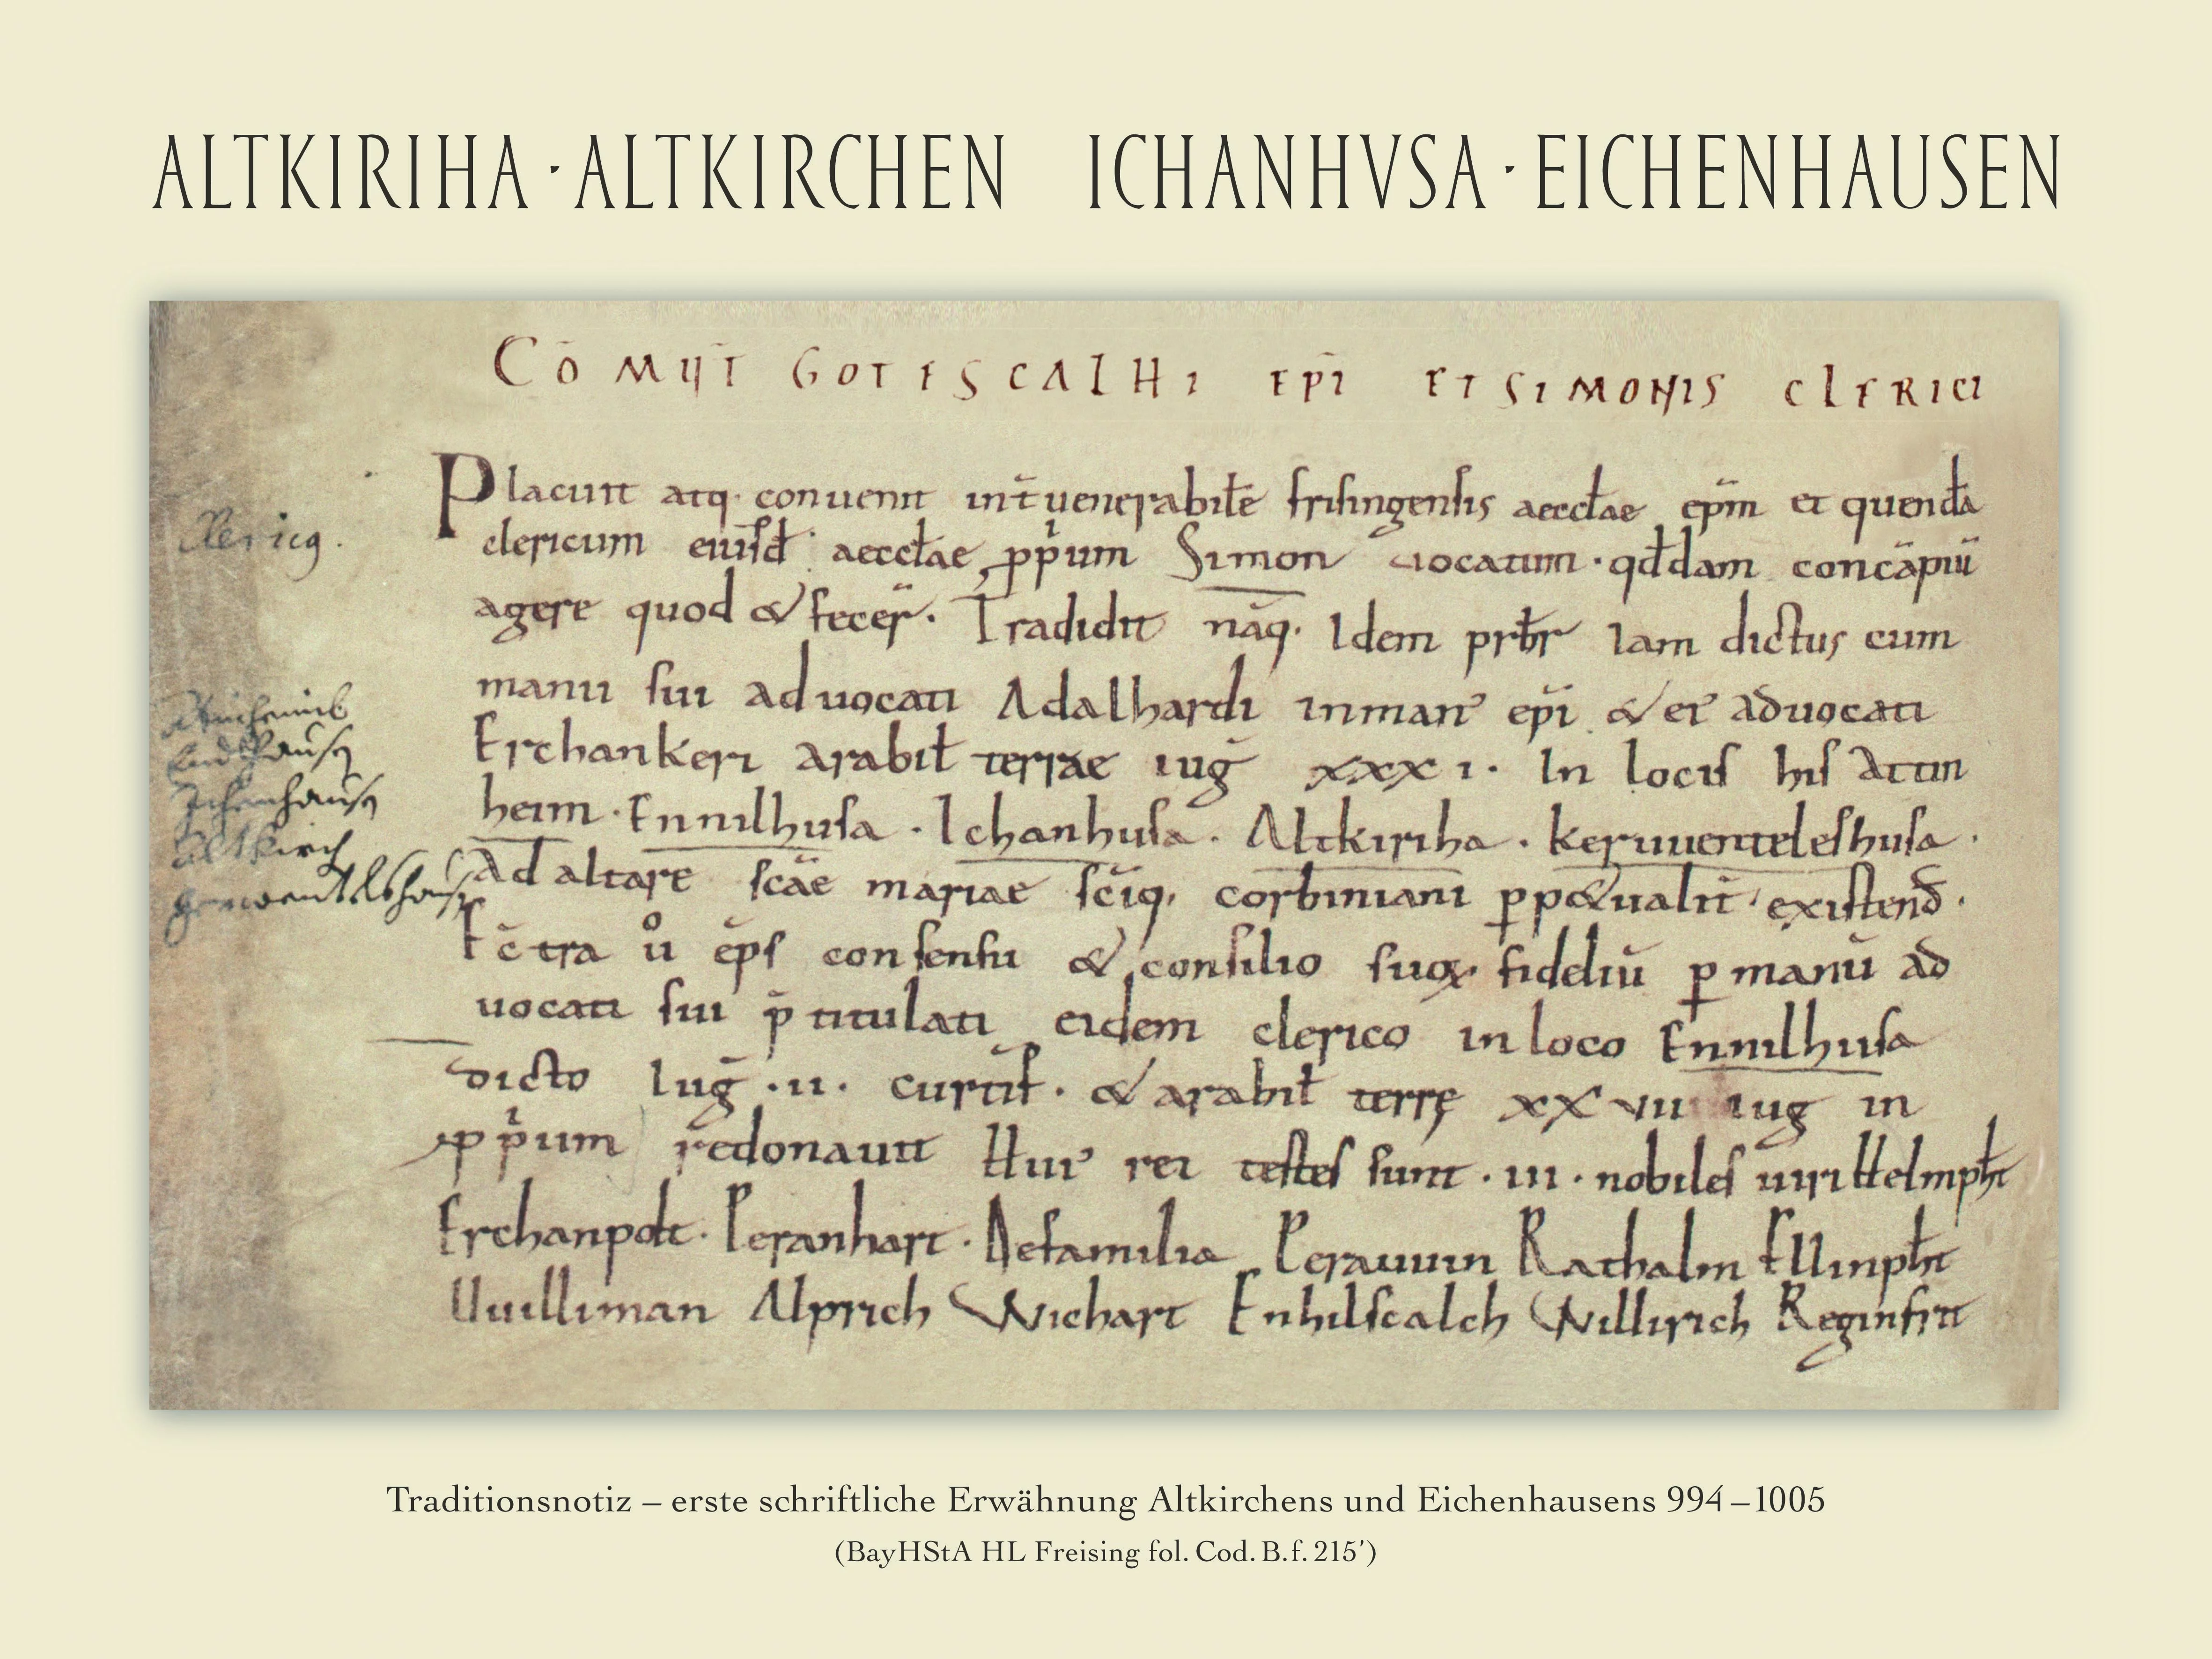 ALTKIRIHA · ALTKIRCHEN ICHANHVSA · EICHENHAUSEN
CŌMUT̄ GOTESCALHI EPĪ ET SIMONIS CLERICI
Placuit atq· conuenit int̄ uenerabilē frisingensis aeccłae ep̄m et quendā
clericum eiusđ aeccłae ꝓp̄um Simon uocatum · qđdam concāpiū
agere quod & fecer̄. Tradidit nāq· Idem prƀr Iam dictus cum
manu sui aduocati Adalhardi in man᾿ ep̄i & ei᾿ aduocati
Erchankeri arabił terrae iuḡ xxxi. In locis his Atin
heim · Ennilhusa · Ichanhusa · Altkiriha · keruuenteleshusa ·
Ad altare sc̄ae mariae sc̄iq· corbiniani ꝑp&ualit̄ existenđ.
Ec̄tra uͦ ep̄s consensu & consilio suoꝝ fideliū ꝑ manū ad
uocati sui p̄titulati eidem clerico in loco Ennilhusa
dicto Iuḡ · ii · curtif̄ · & arabił terrę xxvii iug in
ꝓp̄um redonauit Hui᾿ rei testes sunt · iii · nobiles uiri Helmpħt
Erchanpolt · Peranhart · De familia Perauuin Rathalm Ellinpħt
Uuilliman Alprich Wichart Enhilscalch Willirich Reginfrit
Ichenhausen
Altkirch
Traditionsnotiz – erste schriftliche Erwähnung Altkirchens und Eichenhausens 994–1005
(BayHStA HL Freising fol. Cod. B. f. 215’)